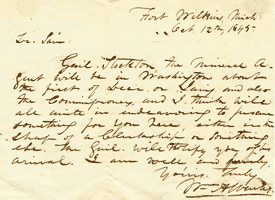 Fort Wilkins, Mich
Oct 12th, 1845
Dr. Sir:
Genl. Stockton the Mineral A-
gent will be in Washington about
the first of Decr. or Jany and also
the Commissioner, and I think will
all unite in endeavoring to procure
something for you here in the
shape of a Clerkship or Something
else. The Genl. will notify you of his
arrival. I am well and
Yours truly